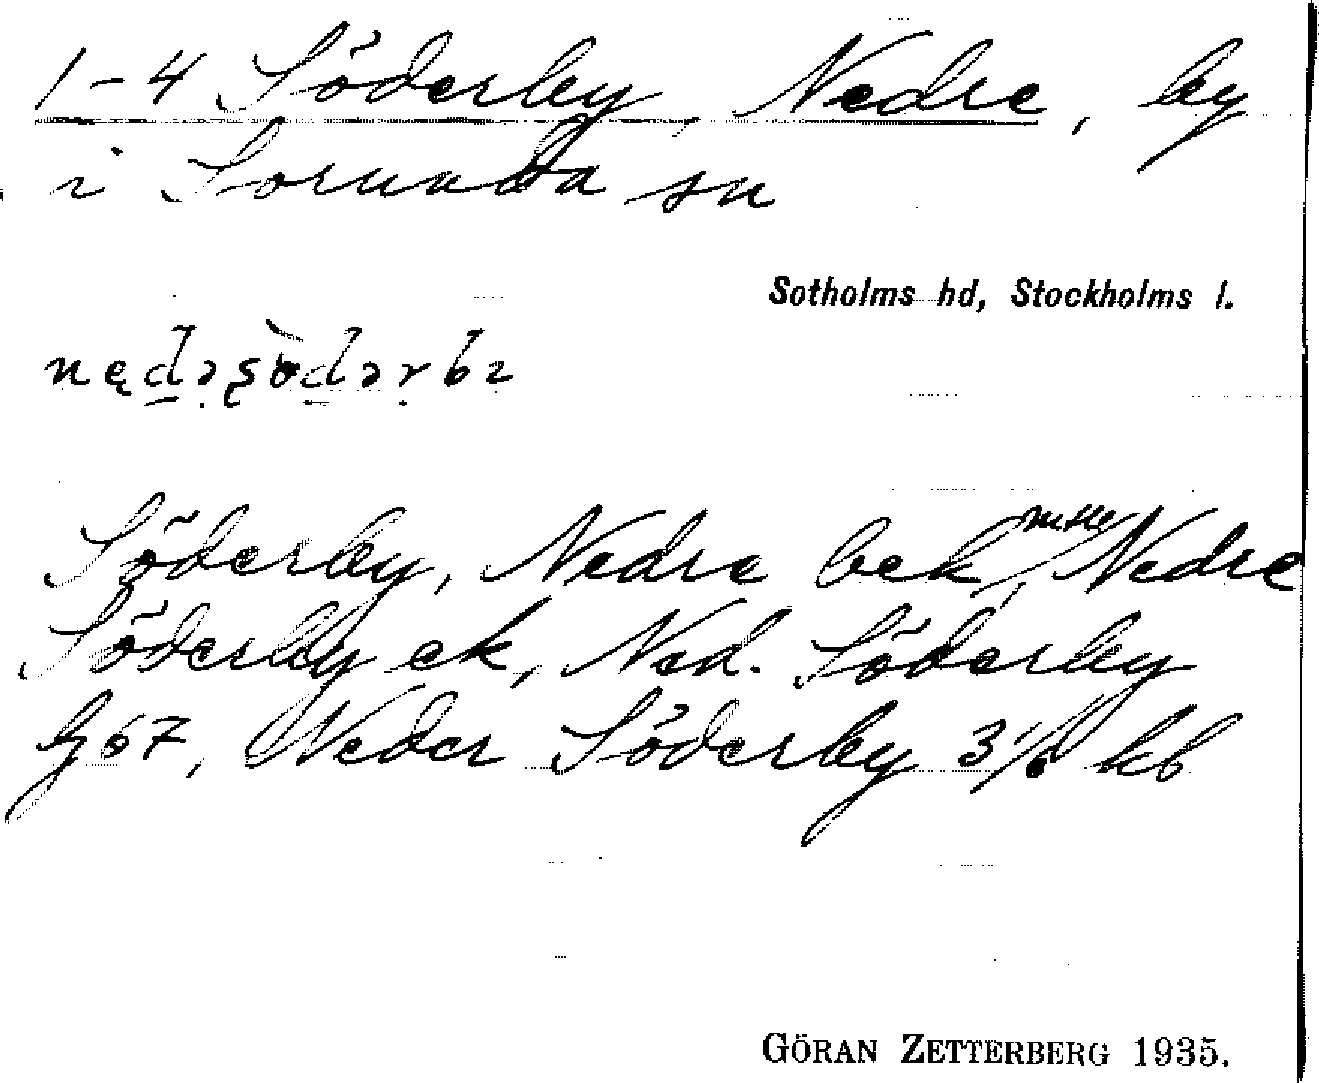 1-4 Söderby, Nedre, by
i Sorunda sn
Sotholms hd, Stockholms l.
Söderby, Nedre bek, Nedre
Söderby ek, Ned. Söderby
G 67, Neder Söderby 3 1/6 kb
GÖRAN ZETTERBERG 1935.